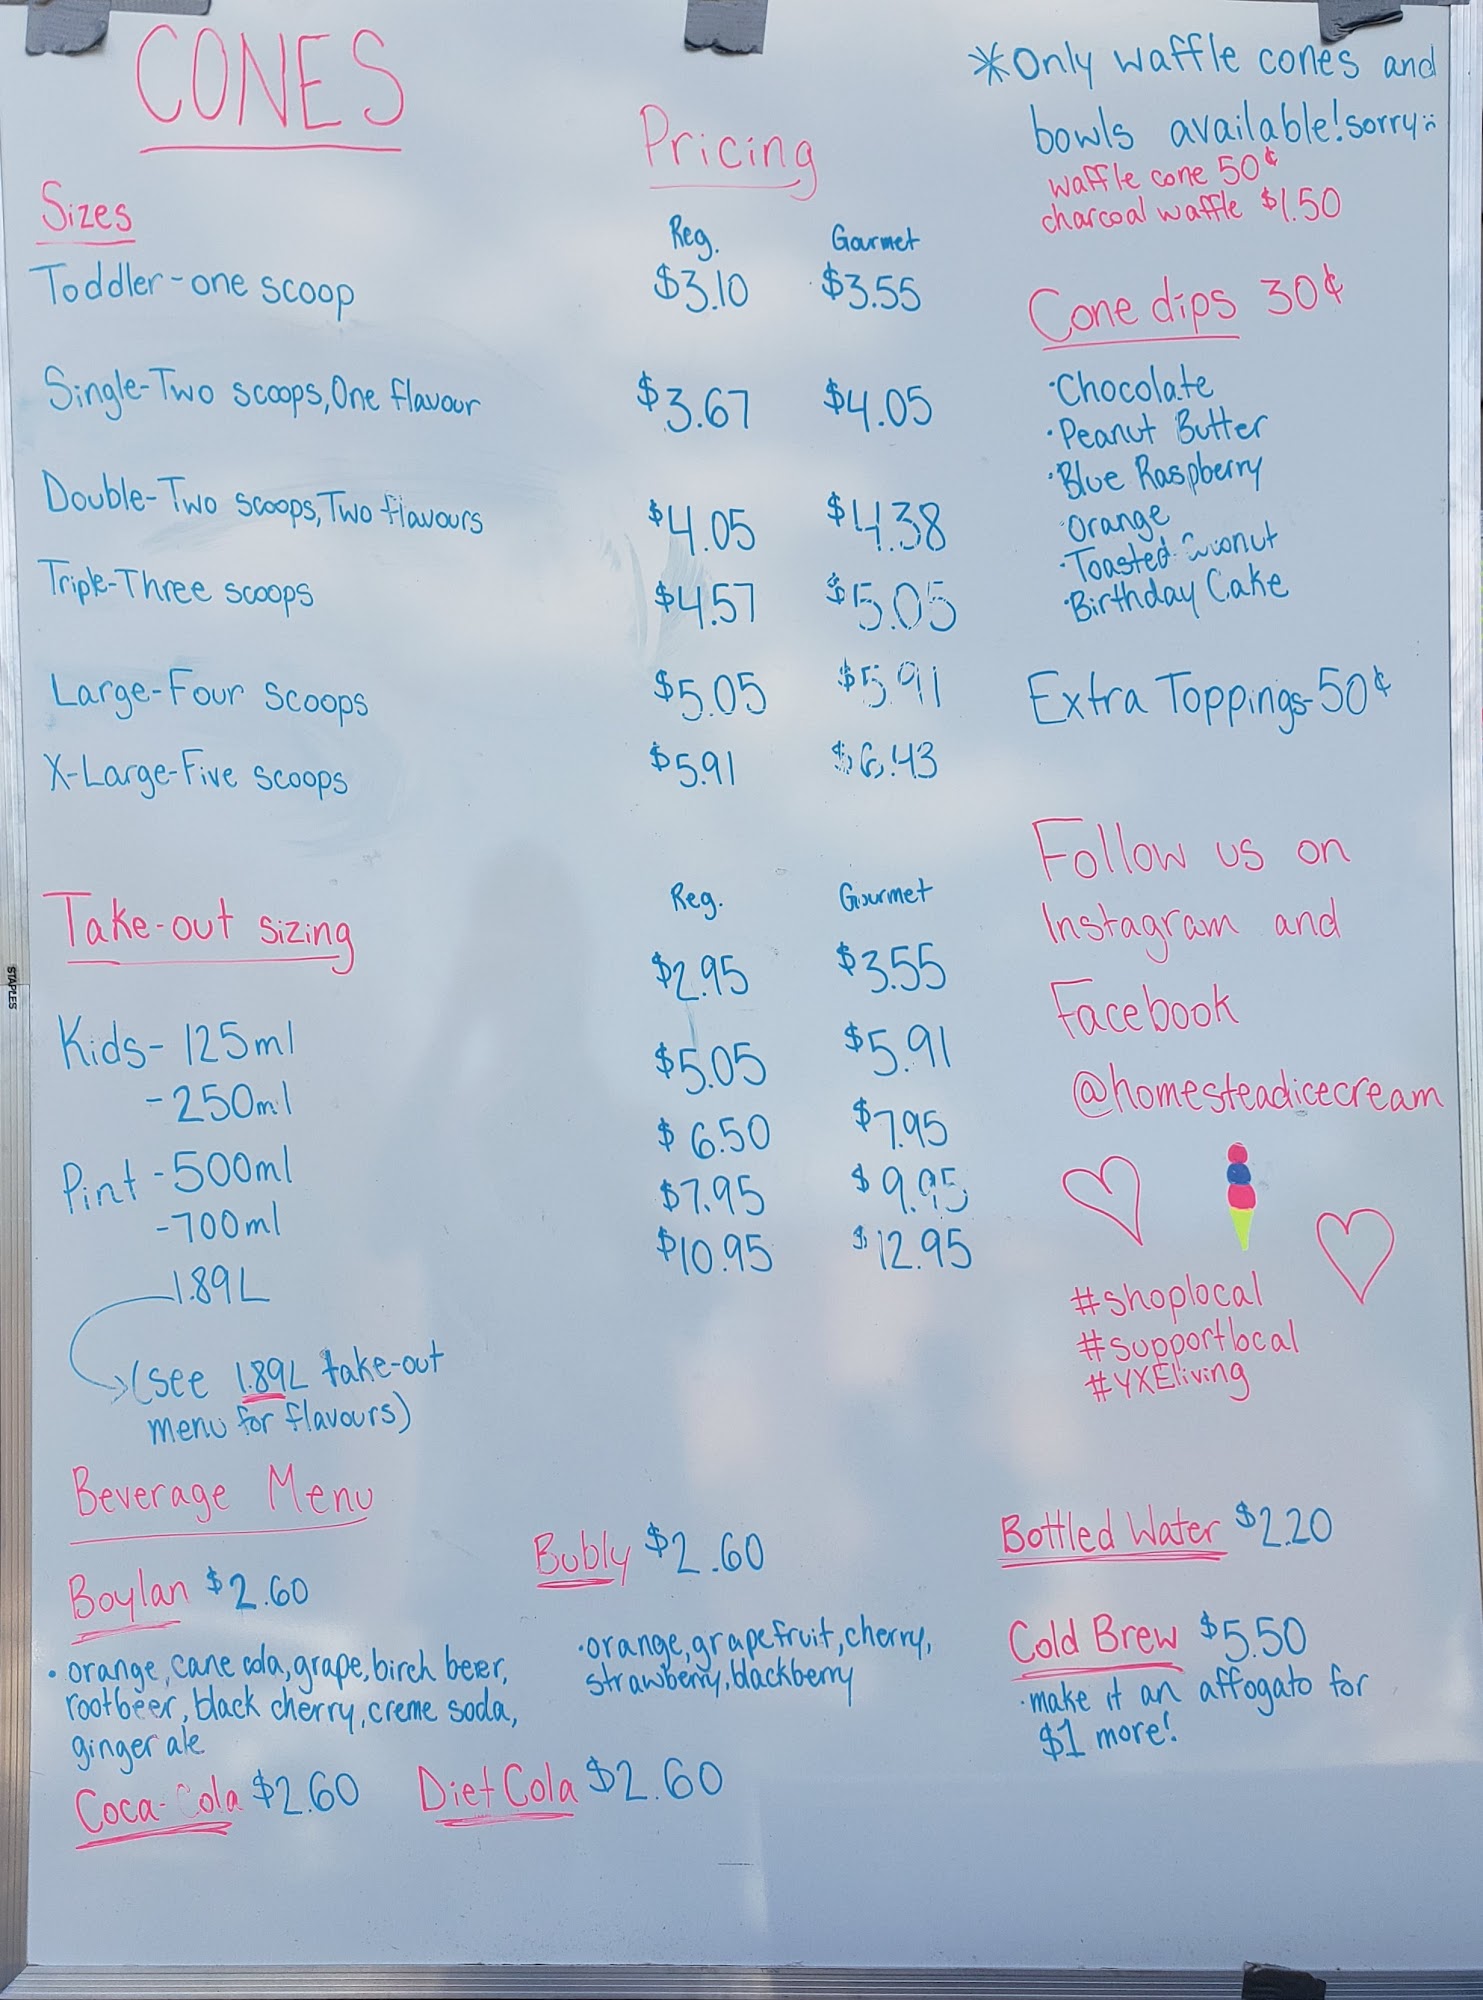 CONES
Sizes
Pricing
Reg. Gourmet
Toddler-one scoop $3.10 $3.55
Single-Two scoops, One flavour $3.67 $4.05
Double-Two scoops, Two flavours $4.05 $4.38
Triple-Three scoops $4.57 $5.05
Large-Four scoops $5.05 $5.91
X-Large-Five scoops $5.91 $6.43
*Only waffle cones and
bowls available! sorry :(
waffle cone 50¢
charcoal waffle $1.50
Cone dips 30¢
·Chocolate
·Peanut Butter
·Blue Raspberry
Orange
·Toasted Coconut
·Birthday Cake
Extra Toppings-50¢
Take-out sizing
Reg. Gourmet
Kids- 125ml $2.95 $3.55
-250ml $5.05 $5.91
Pint -500ml $6.50 $7.95
-700ml $7.95 $9.95
1.89L $10.95 $12.95
(see 1.89L take-out
menu for flavours)
Follow us on
Instagram and
Facebook
@homesteadicecream
#shoplocal
#supportlocal
#YXEliving
Beverage Menu
Boylan $2.60
·orange, cane cola, grape, birch beer,
rootbeer, black cherry, creme soda,
ginger ale
Coca-Cola $2.60 Diet Cola $2.60
Bubly $2.60
·orange, grapefruit, cherry,
strawberry, blackberry
Bottled Water $2.20
Cold Brew $5.50
·make it an affogato for
$1 more!
STAPLES